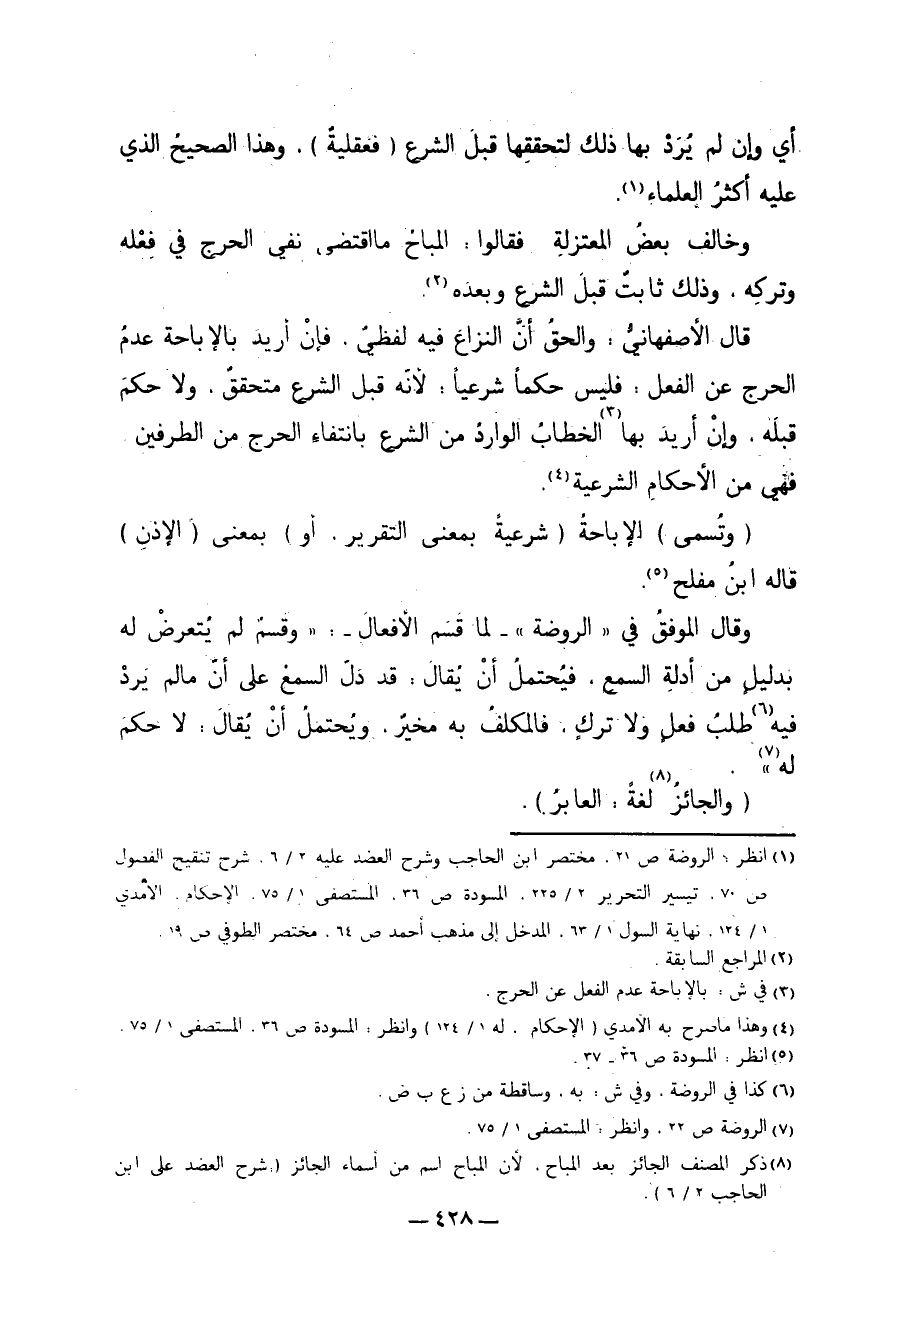 أي وإن لم يُرَدْ بها ذلك لتحققِها قبلَ الشرع ( فعَقليةٌ ) . وهذا الصحيحُ الذي
عليه أكثرُ العلماء(١).
وخالف بعضُ المعتزلةِ فقالوا : المباحُ مااقتضى نفي الحرج في فِعْله
وتركِه ، وذلك ثابتٌ قبلَ الشرع وبعدَه(٢).
قال الأصفهانيُّ : والحقُ أنَّ النزاعَ فيه لفظيٌ ، فإنْ أريدَ بالإباحة عدمُ
الحرج عن الفعل : فليس حكماً شرعياً : لأنّه قبل الشرع متحققٌ ، ولا حكمَ
قبلَه ، وإنْ أريدَ بها(٣) الخطابُ الواردُ من الشرع بانتفاء الحرج من الطرفين
فهْي من الأحكامِ الشرعية(٤).
( وتُسمى ) الإباحةُ ( شرعيةً بمعنى التقرير ، أو ) بمعنى ( الإذنِ )
قاله ابنُ مفلح(٥).
وقال الموفقُ في « الروضة » ـ لما قَسَم الأفعالَ ـ : « وقسمٌ لم يُتعرضْ له
بدليلٍ من أدلةِ السمع ، فيُحتملُ أنْ يُقالَ : قد دَلّ السمعُ على أنّ مالم يَردْ
فيه(٦) طلبُ فعلٍ ولا تركٍ ، فالمكلفُ به مخيرٌ ، ويُحتملُ أنْ يُقالَ : لا حكمَ
له»(٧) .
( والجائزُ(٨) لغةً : العابرُ ) .
(١) انظر : الروضة ص ٢١ ، مختصر ابن الحاجب وشرح العضد عليه ٢ / ٦ ، شرح تنقيح الفصول
ص ٧٠ ، تيسير التحرير ٢ / ٢٢٥ ، المسودة ص ٣٦ ، المستصفى ١ / ٧٥ ، الإحكام ، الآمدي
١ / ١٢٤ ، نهاية السول ١ / ٦٣ ، المدخل إلى مذهب أحمد ص ٦٤ ، مختصر الطوفي ص ١٩ .
(٢) المراجع السابقة .
(٣) في ش : بالإباحة عدم الفعل عن الحرج .
(٤) وهذا ماصرح به الآمدي ( الإحكام ، له ١ / ١٢٤ ) وانظر : المسودة ص ٣٦ ، المستصفى ١ / ٧٥ .
(٥) انظر : المسودة ص ٣٦ ـ ٣٧ .
(٦) كذا في الروضة ، وفي ش : به ، وساقطة من ز ع ب ض .
(٧) الروضة ص ٢٢ ، وانظر : المستصفى ١ / ٧٥ .
(٨) ذكر المصنف الجائز بعد المباح ، لأن المباح اسم من أسماء الجائز ( شرح العضد على ابن
الحاجب ٢ / ٦ ) .
— ٤٢٨ —